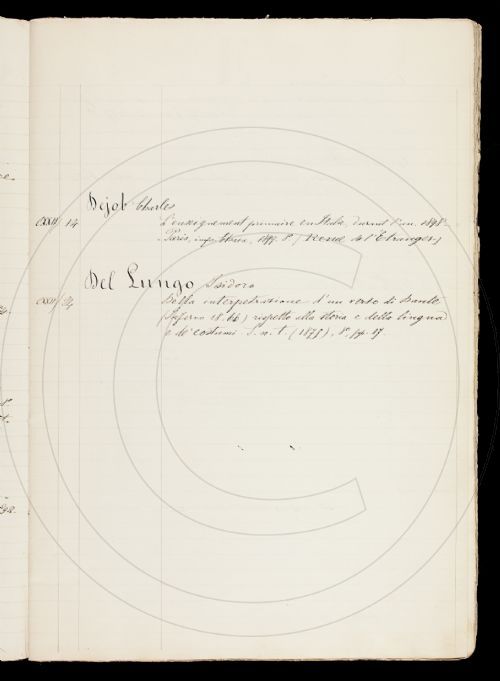 Dejob Charles
CXXII 14 L'enseignement primaire en Italie, durant l'an. 1898
Paris, imp. 1899. 8° (Revue de l'Etranger)
Del Lungo Isidoro
CXXII 24 Della interpretazione d'un verso di Dante
(Inferno 18. 66) rispetto alla storia e della lingua
e de' costumi. S. n. t. (1875), 8°, pp. 17.